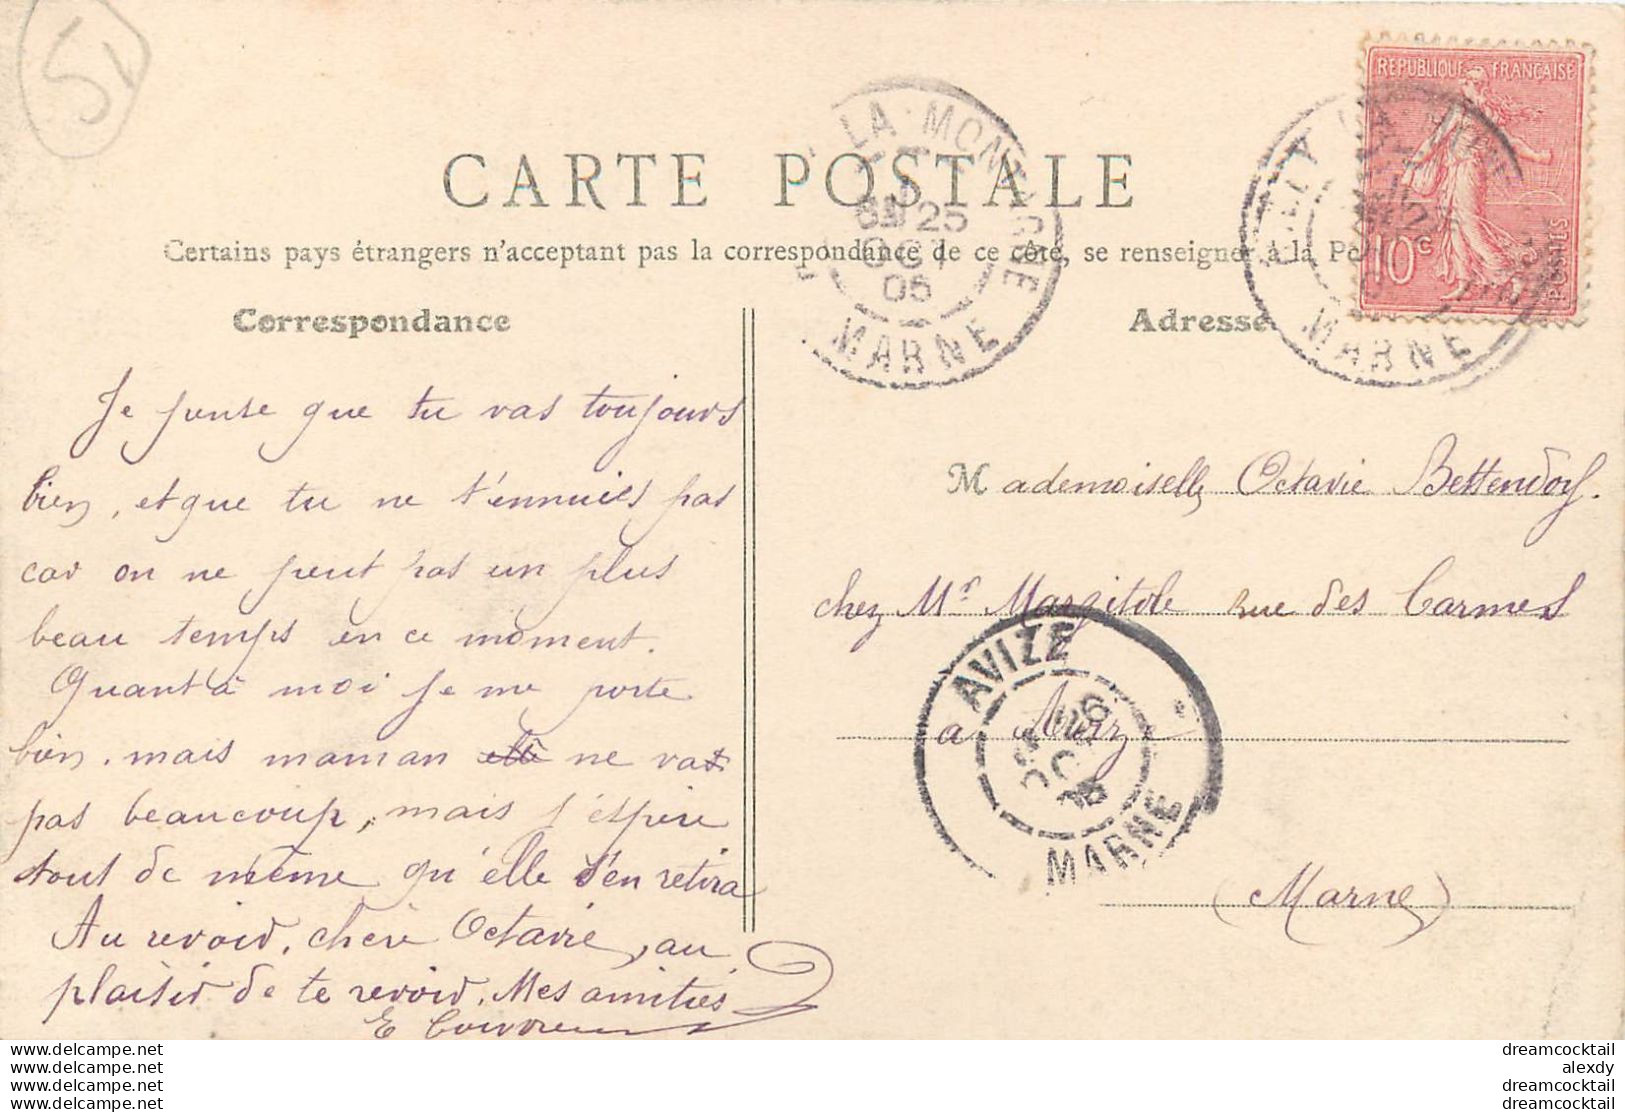 51
LA MONTAGNE
25
OCT
05
MARNE
REPUBLIQUE FRANÇAISE
10c
POSTES
MARNE
CARTE POSTALE
Certains pays étrangers n'acceptant pas la correspondance de ce côté, se renseigner à la
Correspondance
Adresse
Je pense que tu vas toujours
bien, et que tu ne t'ennuies pas
car on ne peut pas un plus
beau temps en ce moment.
Quant à moi je me porte
bien. mais maman ne vas
pas beaucoup, mais j'éspère
tout de même qu'elle s'en retira
Au revoir, chère Octavie, au
plaisir de te revoir. Mes amitiés
E
Mademoiselle Octavie Bettendorf.
chez Mr Margitole rue des Carmes
a Avize
(Marne)
AVIZE
26
OCT
05
MARNE
www.delcampe.net
www.delcampe.net
www.delcampe.net
www.delcampe.net
dreamcocktail
alexdy
dreamcocktail
dreamcocktail